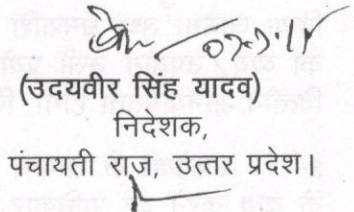 (उदयवीर सिंह यादव)
निदेशक,
पंचायती राज, उत्तर प्रदेश।